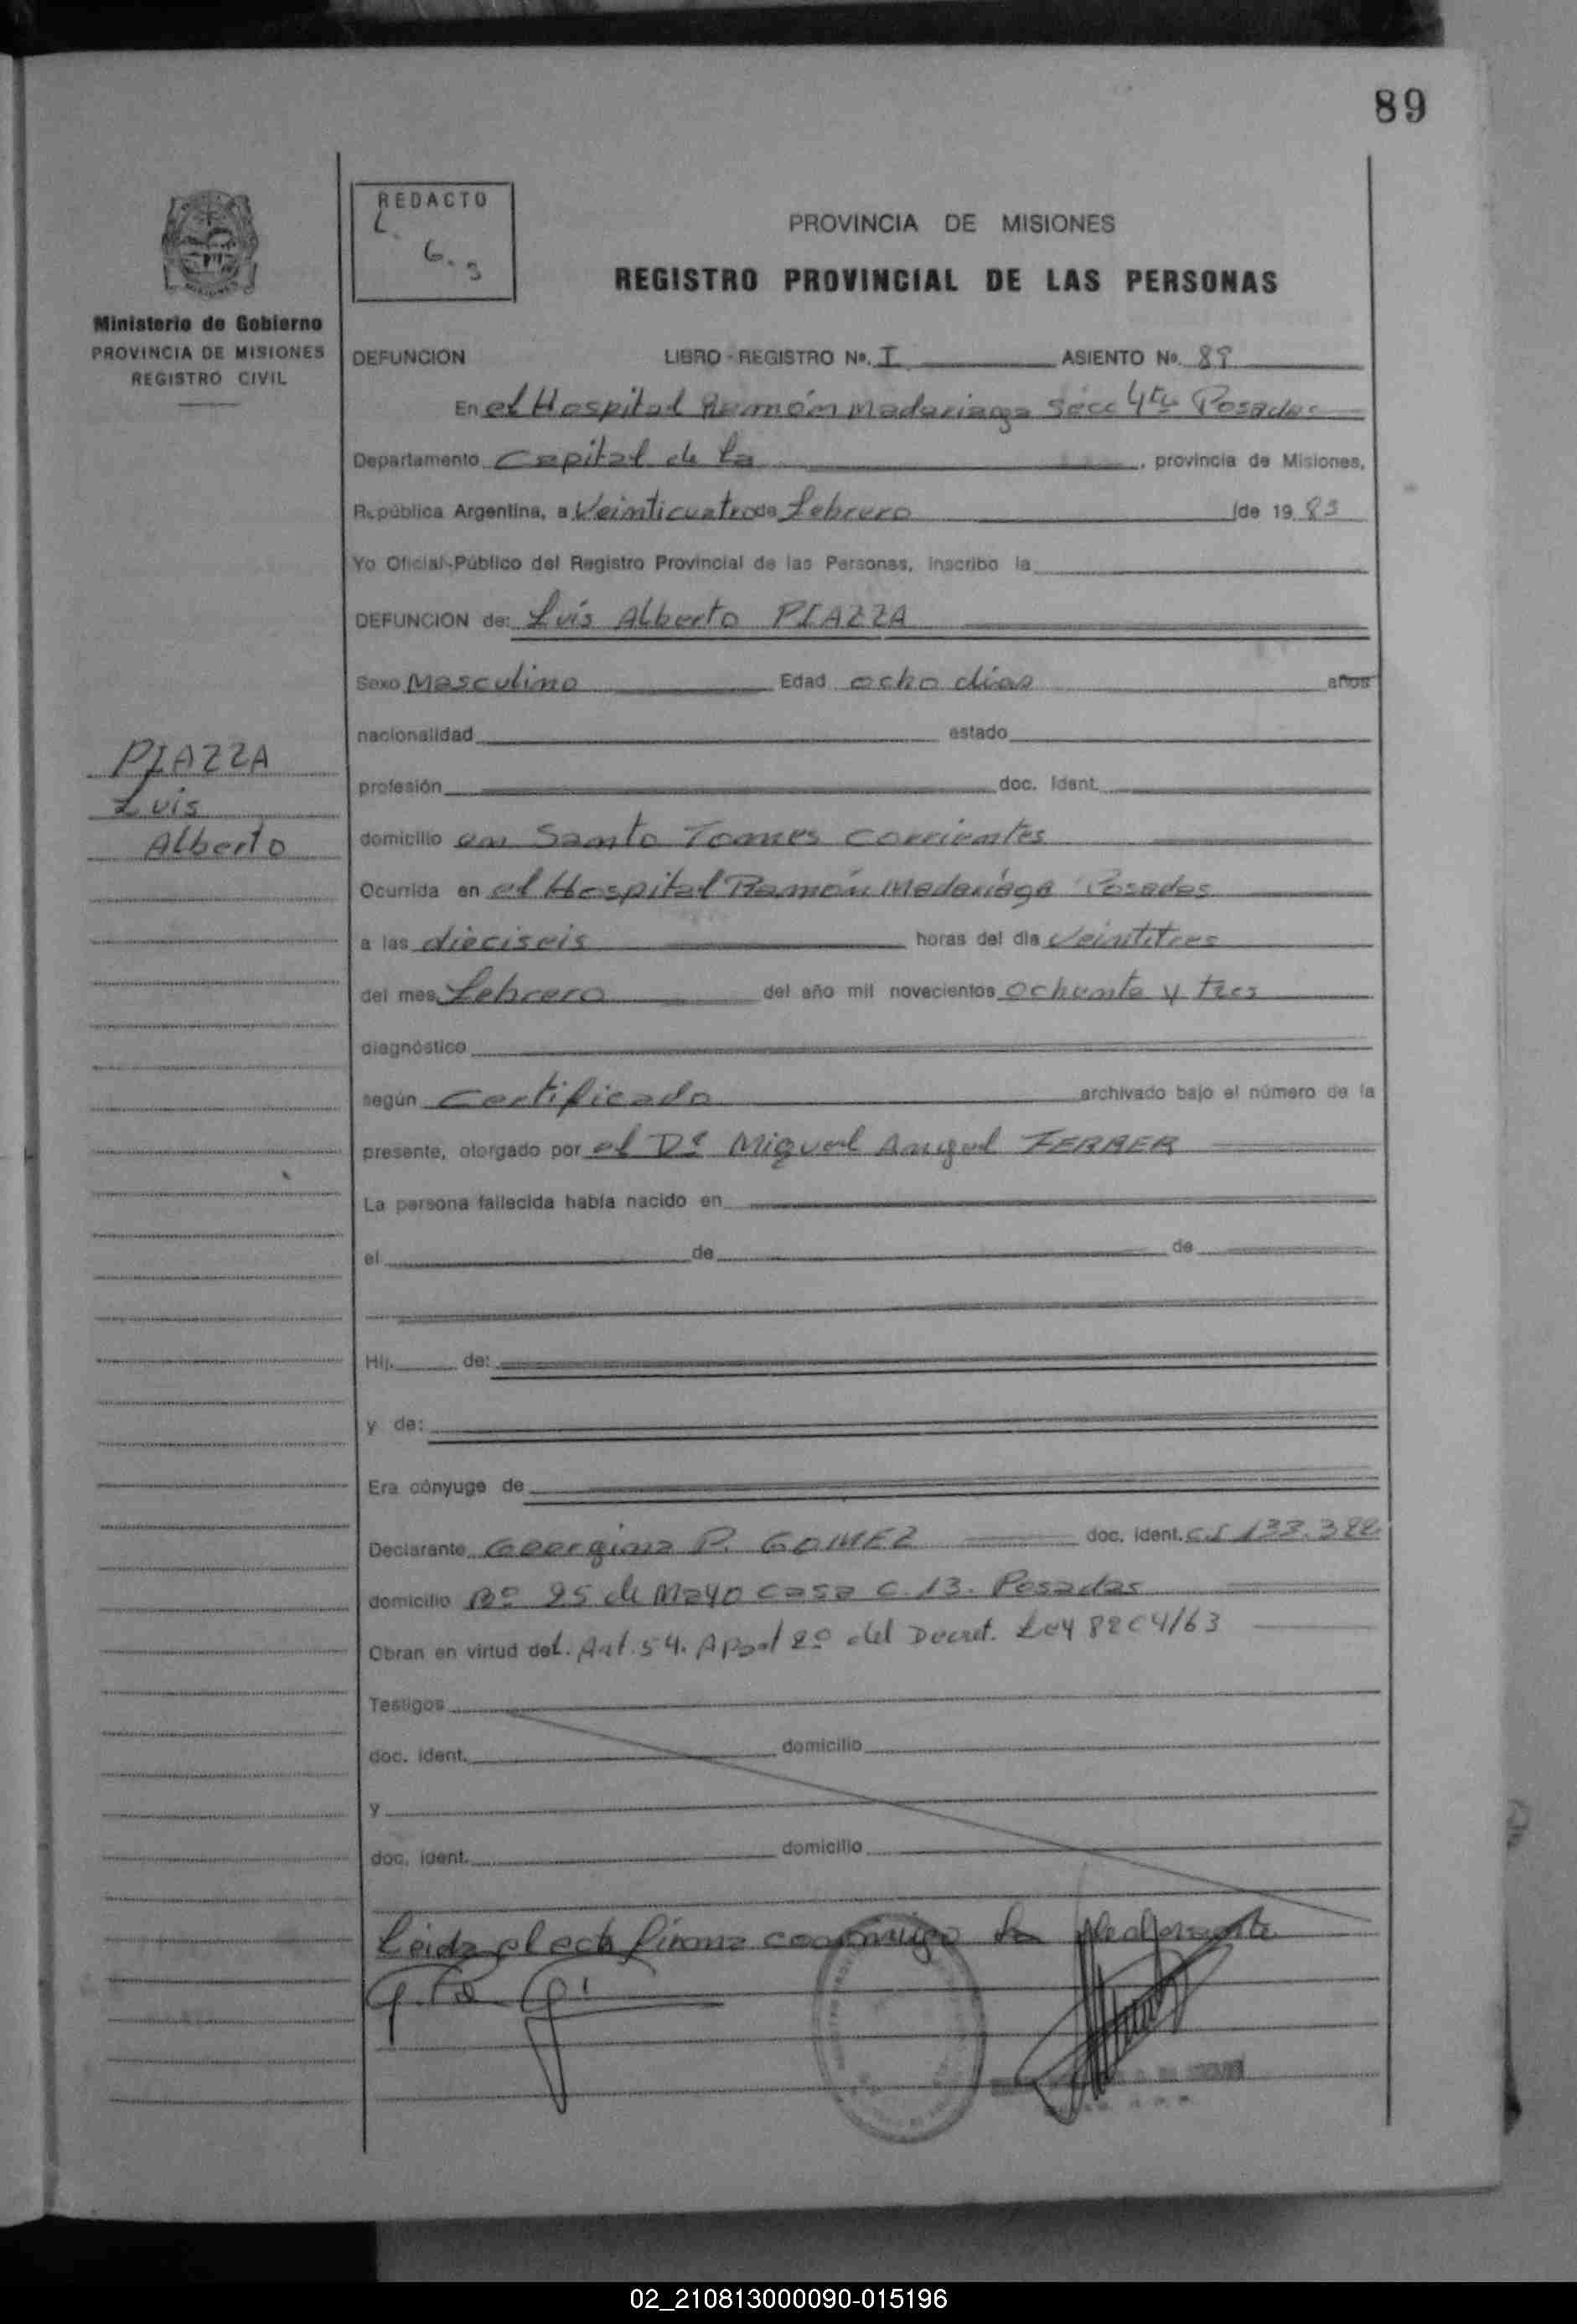 89
REDACTO
L. G. S
PROVINCIA DE MISIONES
REGISTRO PROVINCIAL DE LAS PERSONAS
Ministerio de Gobierno
PROVINCIA DE MISIONES
REGISTRO CIVIL
DEFUNCION LIBRO - REGISTRO Nº. I ASIENTO Nº. 89
En el Hospital Ramón Madariaga Secc 4ta Posadas
Departamento Capital de la , provincia de Misiones,
República Argentina, a Veinticuatro de Febrero de 19 83
Yo Oficial Público del Registro Provincial de las Personas, inscribo la
DEFUNCION de: Luis Alberto PIAZZA
Sexo Masculino Edad ocho días años
nacionalidad estado
PIAZZA
Luis
Alberto
profesión doc. ident.
domicilio en Santo Tomes Corrientes
Ocurrida en el Hospital Ramón Madariaga Posadas
a las dieciseis horas del día Veintitres
del mes Febrero del año mil novecientos ochenta y tres
diagnóstico
según Certificado archivado bajo el número de la
presente, otorgado por el Dr Miguel Angel FERRER
La persona fallecida había nacido en
el de de
Hij. de:
y de:
Era cónyuge de
Declarante Georgina P. GOMEZ doc. ident. C.I
domicilio Bº 25 de Mayo casa C. 13. Posadas
Obran en virtud del. Art. 54. Apart 2º del Decret. Ley 8204/63
Testigos
doc. ident. domicilio
y
doc. ident. domicilio
Leida el acta firma conmigo la
02_210813000090-015196